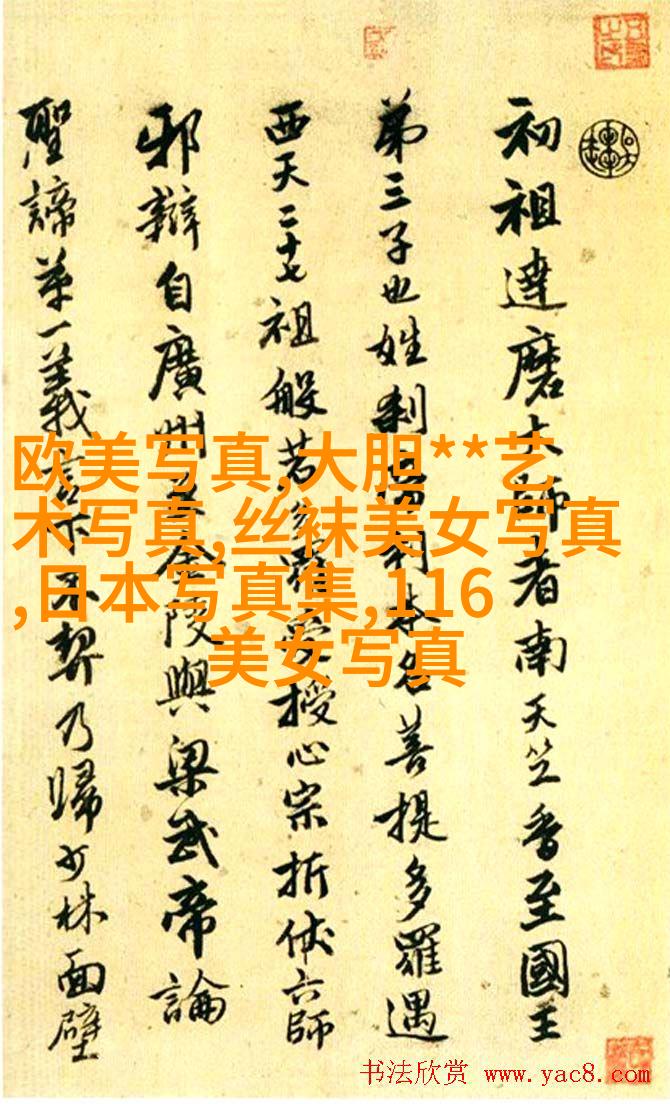 初祖達磨大師者南天竺香至國王
第三子也姓刹帝利本名菩提多羅遇
西天二十七祖般若多羅受授心宗折伏六師
邪辯自廣州至金陵與梁武帝論
聖諦第一義言下不契乃歸少林面壁
欧美写真,大胆**艺
术写真,丝袜美女写真
,日本写真集,116
美女写真
书法欣赏 www.yac8.com